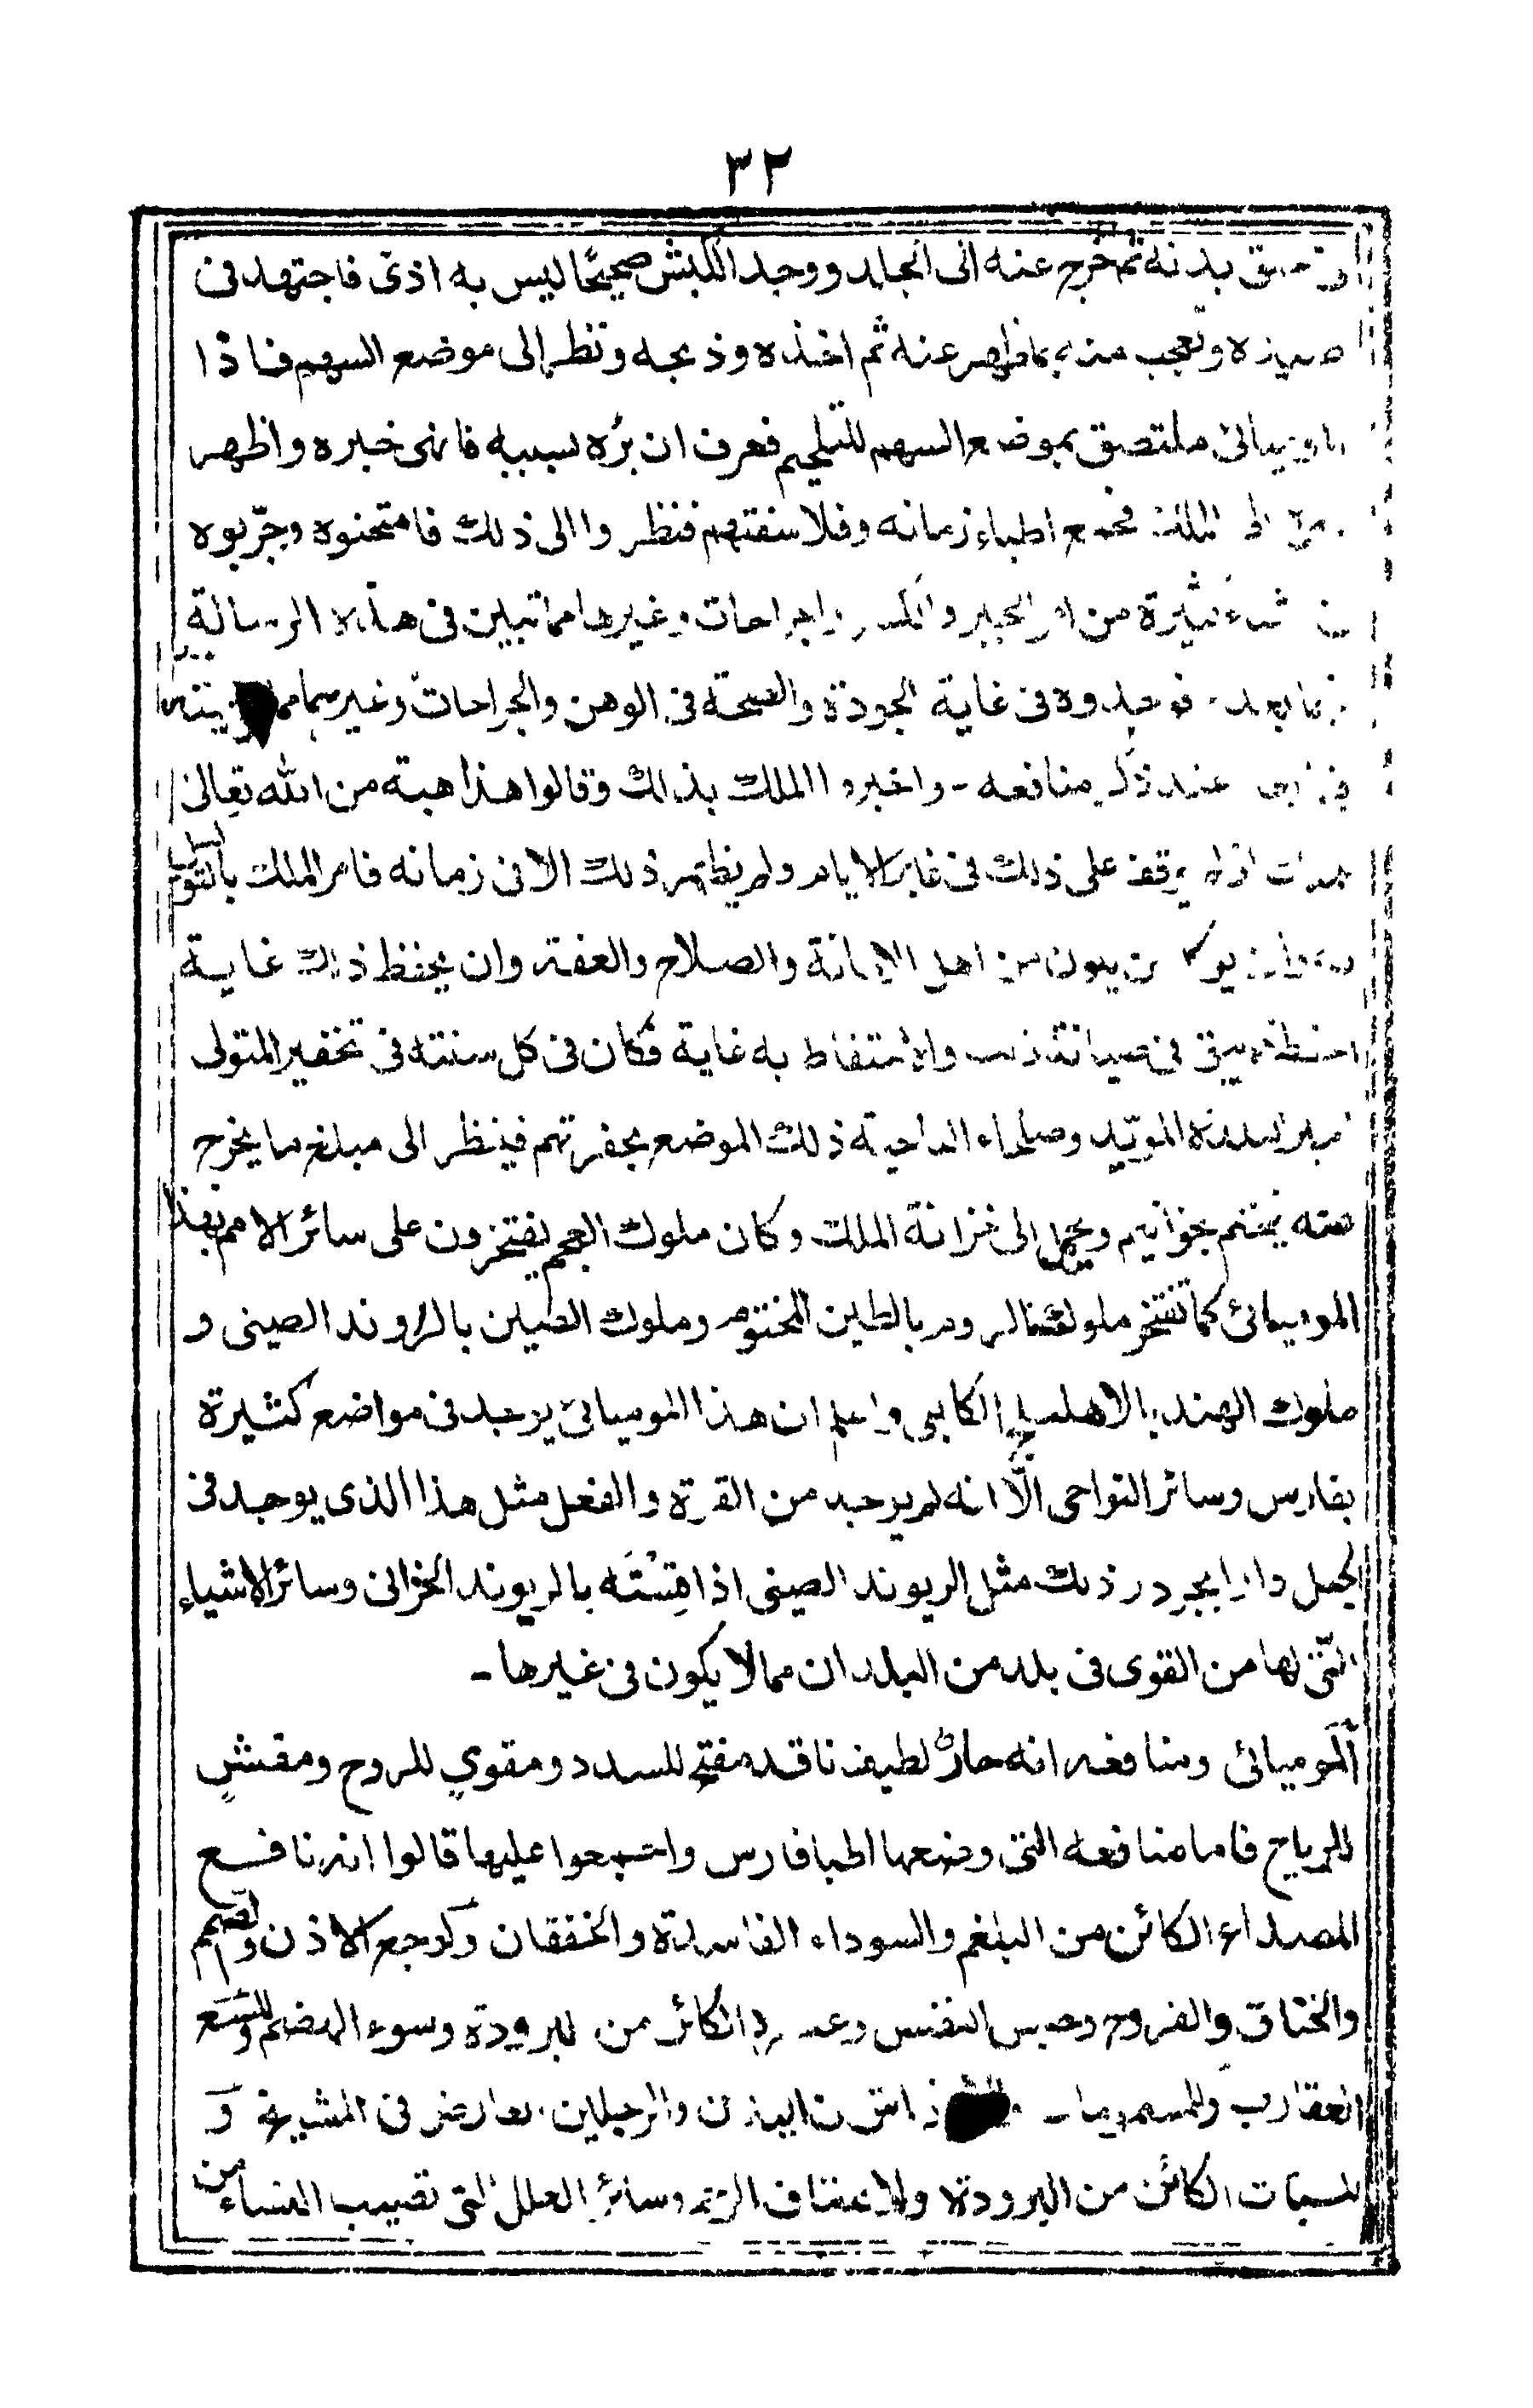 ٣٢
بدنة ثم خرج عنه الى الجلد ووجد الكبش صحيحًا ليس به اذى فاجتهد فى
صيده وتعجب منه بما ظهر عنه ثم اخذه وذبحه ونظر الى موضع السهم فاذا
ملتصق بموضع السهم للتلحيم فعرف ان برّه لسببه فانهى خبره واظهر
الى الملك فجمع اطباء زمانه وفلاسفتهم فنظروا الى ذلك فامتحنوه وجرّبوه
كثيرة من والكسر والجراحات وغيرها مما تبين فى هذه الرسالة
بعد فوجدوه فى غاية الجودة والصحة فى الوهن والجراحات وغير
عند ذكر منافعه - واخبروا الملك بذلك وقالوا هذا هبة من الله تعالى
يوقف على ذلك فى غابر الايام ولم يظهر ذلك الا فى زمانه فامر الملك
من اهل الامانة والصلاح والعفة وان يحفظ ذلك غاية
فى صيانة ذلك والاحتفاظ به غاية فكان فى كل سنته فى تحفير المتولى
المؤيد وصلحاء الناحية ذلك الموضع بحفرتهم فينظر الى مبلغ ما يخرج
منه فيختم بخواتيم ويحمل الى خزانة الملك وكان ملوك العجم يفتخرون على سائر الامم بهذا
الموميائى كما تفتخر ملوك الروم بالطين المختوم وملوك الصين بالراوند الصينى و
ملوك الهند بالاهليلج الكابلى واعلم ان هذا الموميائى يوجد فى مواضع كثيرة
بفارس وسائر النواحى الّا انه لم يوجد من القوة والفعل مثل هذا الذى يوجد فى
الجبل دارابجرد ذلك مثل الريوند الصينى اذا قِسْتَه بالريوند الخزانى وسائر الاشياء
التّى لها من القوى فى بلد من البلدان مما لا يكون فى غيرها -
الموميائى ومنافعه انه حارٌ لطيف ناقد مفتح للسدد ومقوي للروح ومفشٍ
للرياح فاما منافعه التى وضعها اطبا فارس واجتمعوا عليها قالوا انه نافع
للصداع الكائن من البلغم والسوداء الفاسدة والخفقان وكوجع الاذن والصمم
والخناق والقروح وحبس النفس الكائن من البرودة وسوء الهضم وللسع
العقارب وللمسمومات البدن والرجلين فى المشيمة و
الكائن من البرودة ولاختناف الرحم وسائر العلل التى تصيب النساء من